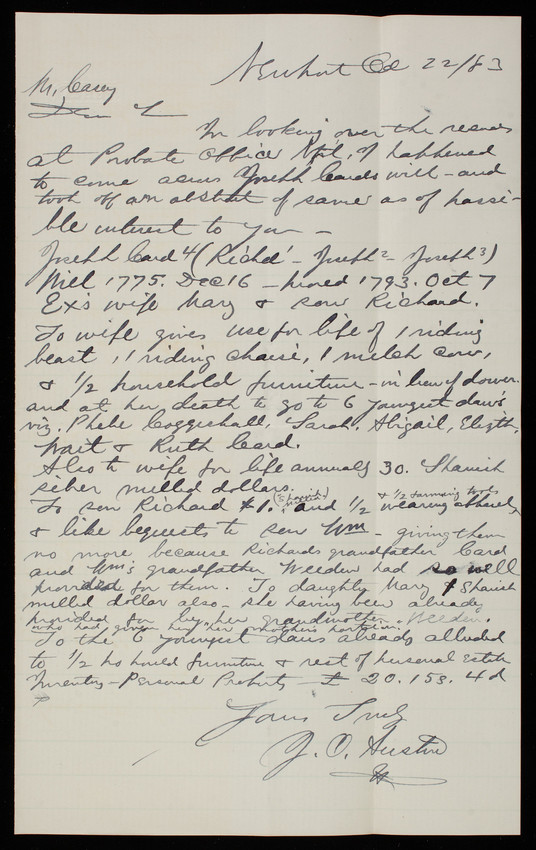 Newport Oct 22/83
Mr. Casey
Dear Sir
In looking over the records
at Probate Office Npt, I happened
to come across Joseph Cards will - and
took off an abstract of same as of possi-
ble interest to you -
Joseph Card 4 (Richd 1 - Joseph 2 - Joseph 3)
Will 1775. Dec 16 - proved 1793. Oct 7
Exs wife Mary & son Richard.
To wife gives use for life of 1 riding
beast, 1 riding chaise, 1 milch cow,
& 1/2 household furniture - in lieu of dower.
and at her death to go to 6 youngest daus
viz. Phebe Coggeshall, Sarah, Abigail, Elizth,
Wait & Ruth Card.
Also to wife for life annually 30. Spanish
silver milled dollars.
To son Richard $1. (Spanish) and 1/2 wearing apparel, & 1/2 farming tools
& like bequests to son Wm - giving them
no more because Richards grandfather Card
and Wm's grandfather Weeden had so well
provided for them. To daughter Mary 1 Spanish
milled dollar also - she having been already
provided for by her grandmother Weeden.
who had given her her mothers portion.
To the 6 youngest daus already alluded
to 1/2 household furniture & rest of personal estate
Inventory - Personal Property £ 20. 15s. 4d
Yours Truly
J. O. Austin